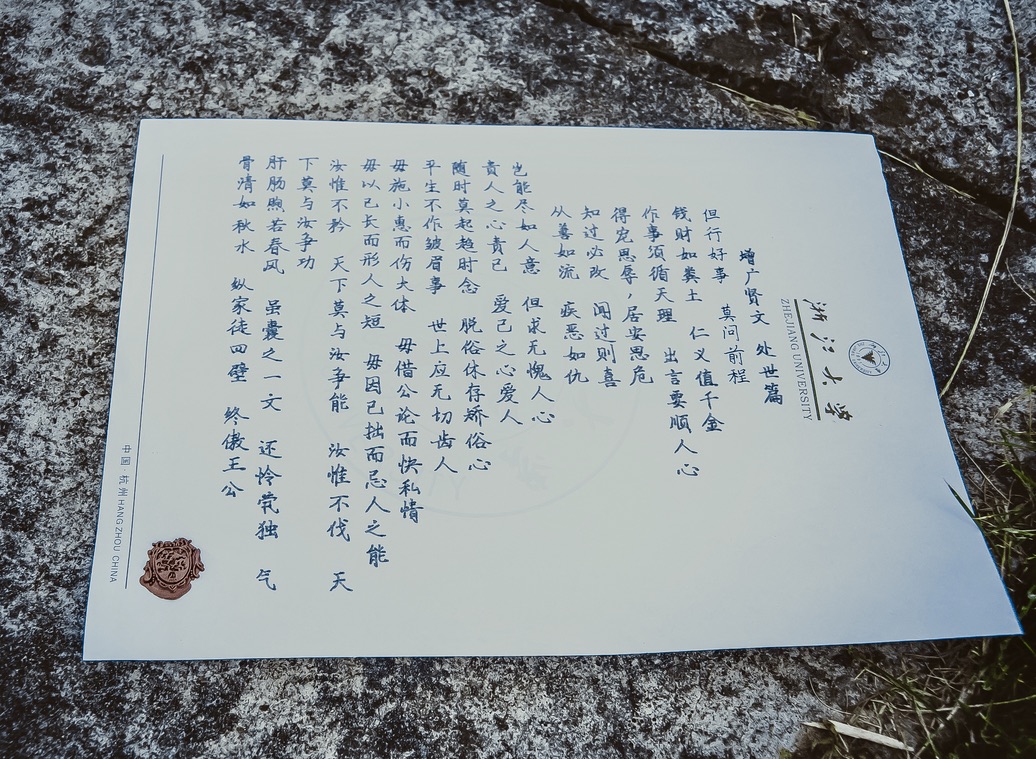 浙江大学
ZHEJIANG UNIVERSITY
增广贤文 处世篇
但行好事 莫问前程
钱财如粪土 仁义值千金
作事须循天理 出言要顺人心
得宠思辱，居安思危
知过必改 闻过则喜
从善如流 疾恶如仇
岂能尽如人意 但求无愧人心
责人之心责己 爱己之心爱人
随时莫起趋时念 脱俗休存矫俗心
平生不作皱眉事 世上应无切齿人
毋施小惠而伤大体 毋借公论而快私情
毋以己长而形人之短 毋因己拙而忌人之能
汝惟不矜 天下莫与汝争能 汝惟不伐 天
下莫与汝争功
肝肠煦若春风 虽囊乏一文 还怜茕独 气
骨清如秋水 纵家徒四壁 终傲王公
中国·杭州 HANGZHOU CHINA